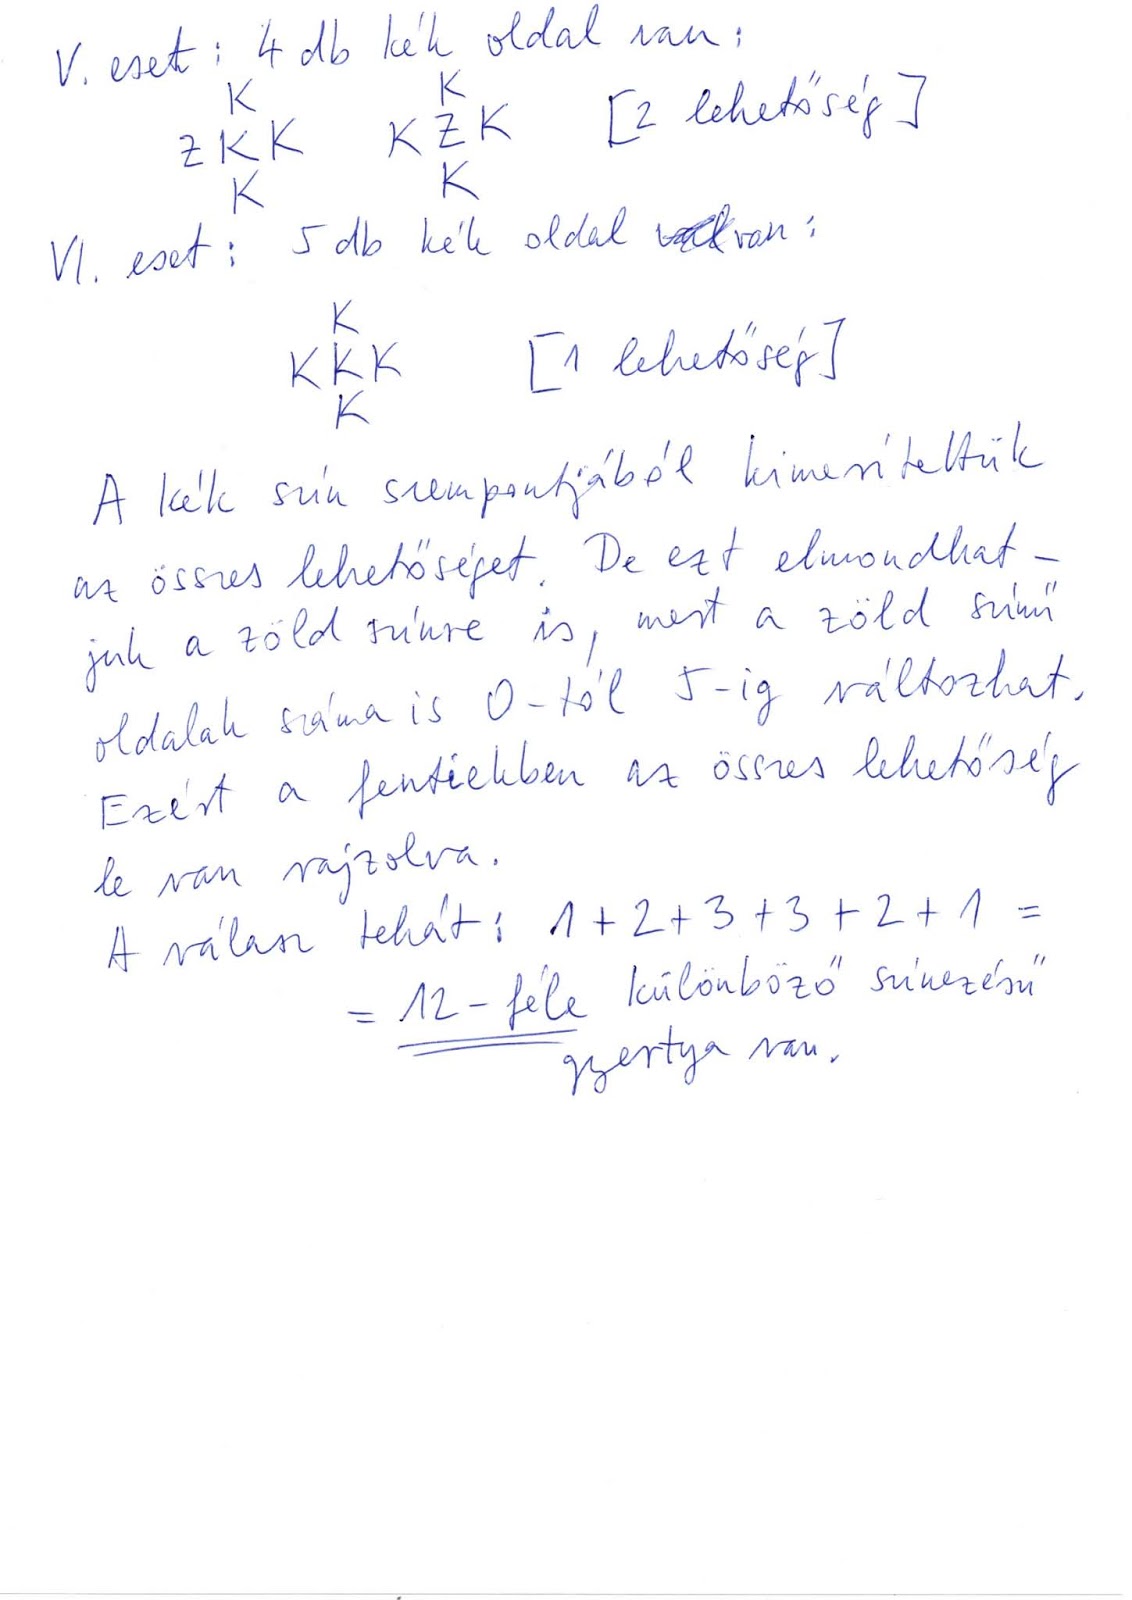 V. eset: 4 db kék oldal van:
K K
Z K K K Z K [2 lehetőség]
K K
VI. eset: 5 db kék oldal van:
K
K K K [1 lehetőség]
K
A kék szín szempontjából kimerítettük
az összes lehetőséget. De ezt elmondhat-
juk a zöld színre is, mert a zöld színű
oldalak száma is 0-tól 5-ig változhat.
Ezért a fentiekben az összes lehetőség
le van rajzolva.
A válasz tehát: 1 + 2 + 3 + 3 + 2 + 1 =
= 12-féle különböző színezésű
gyertya van.